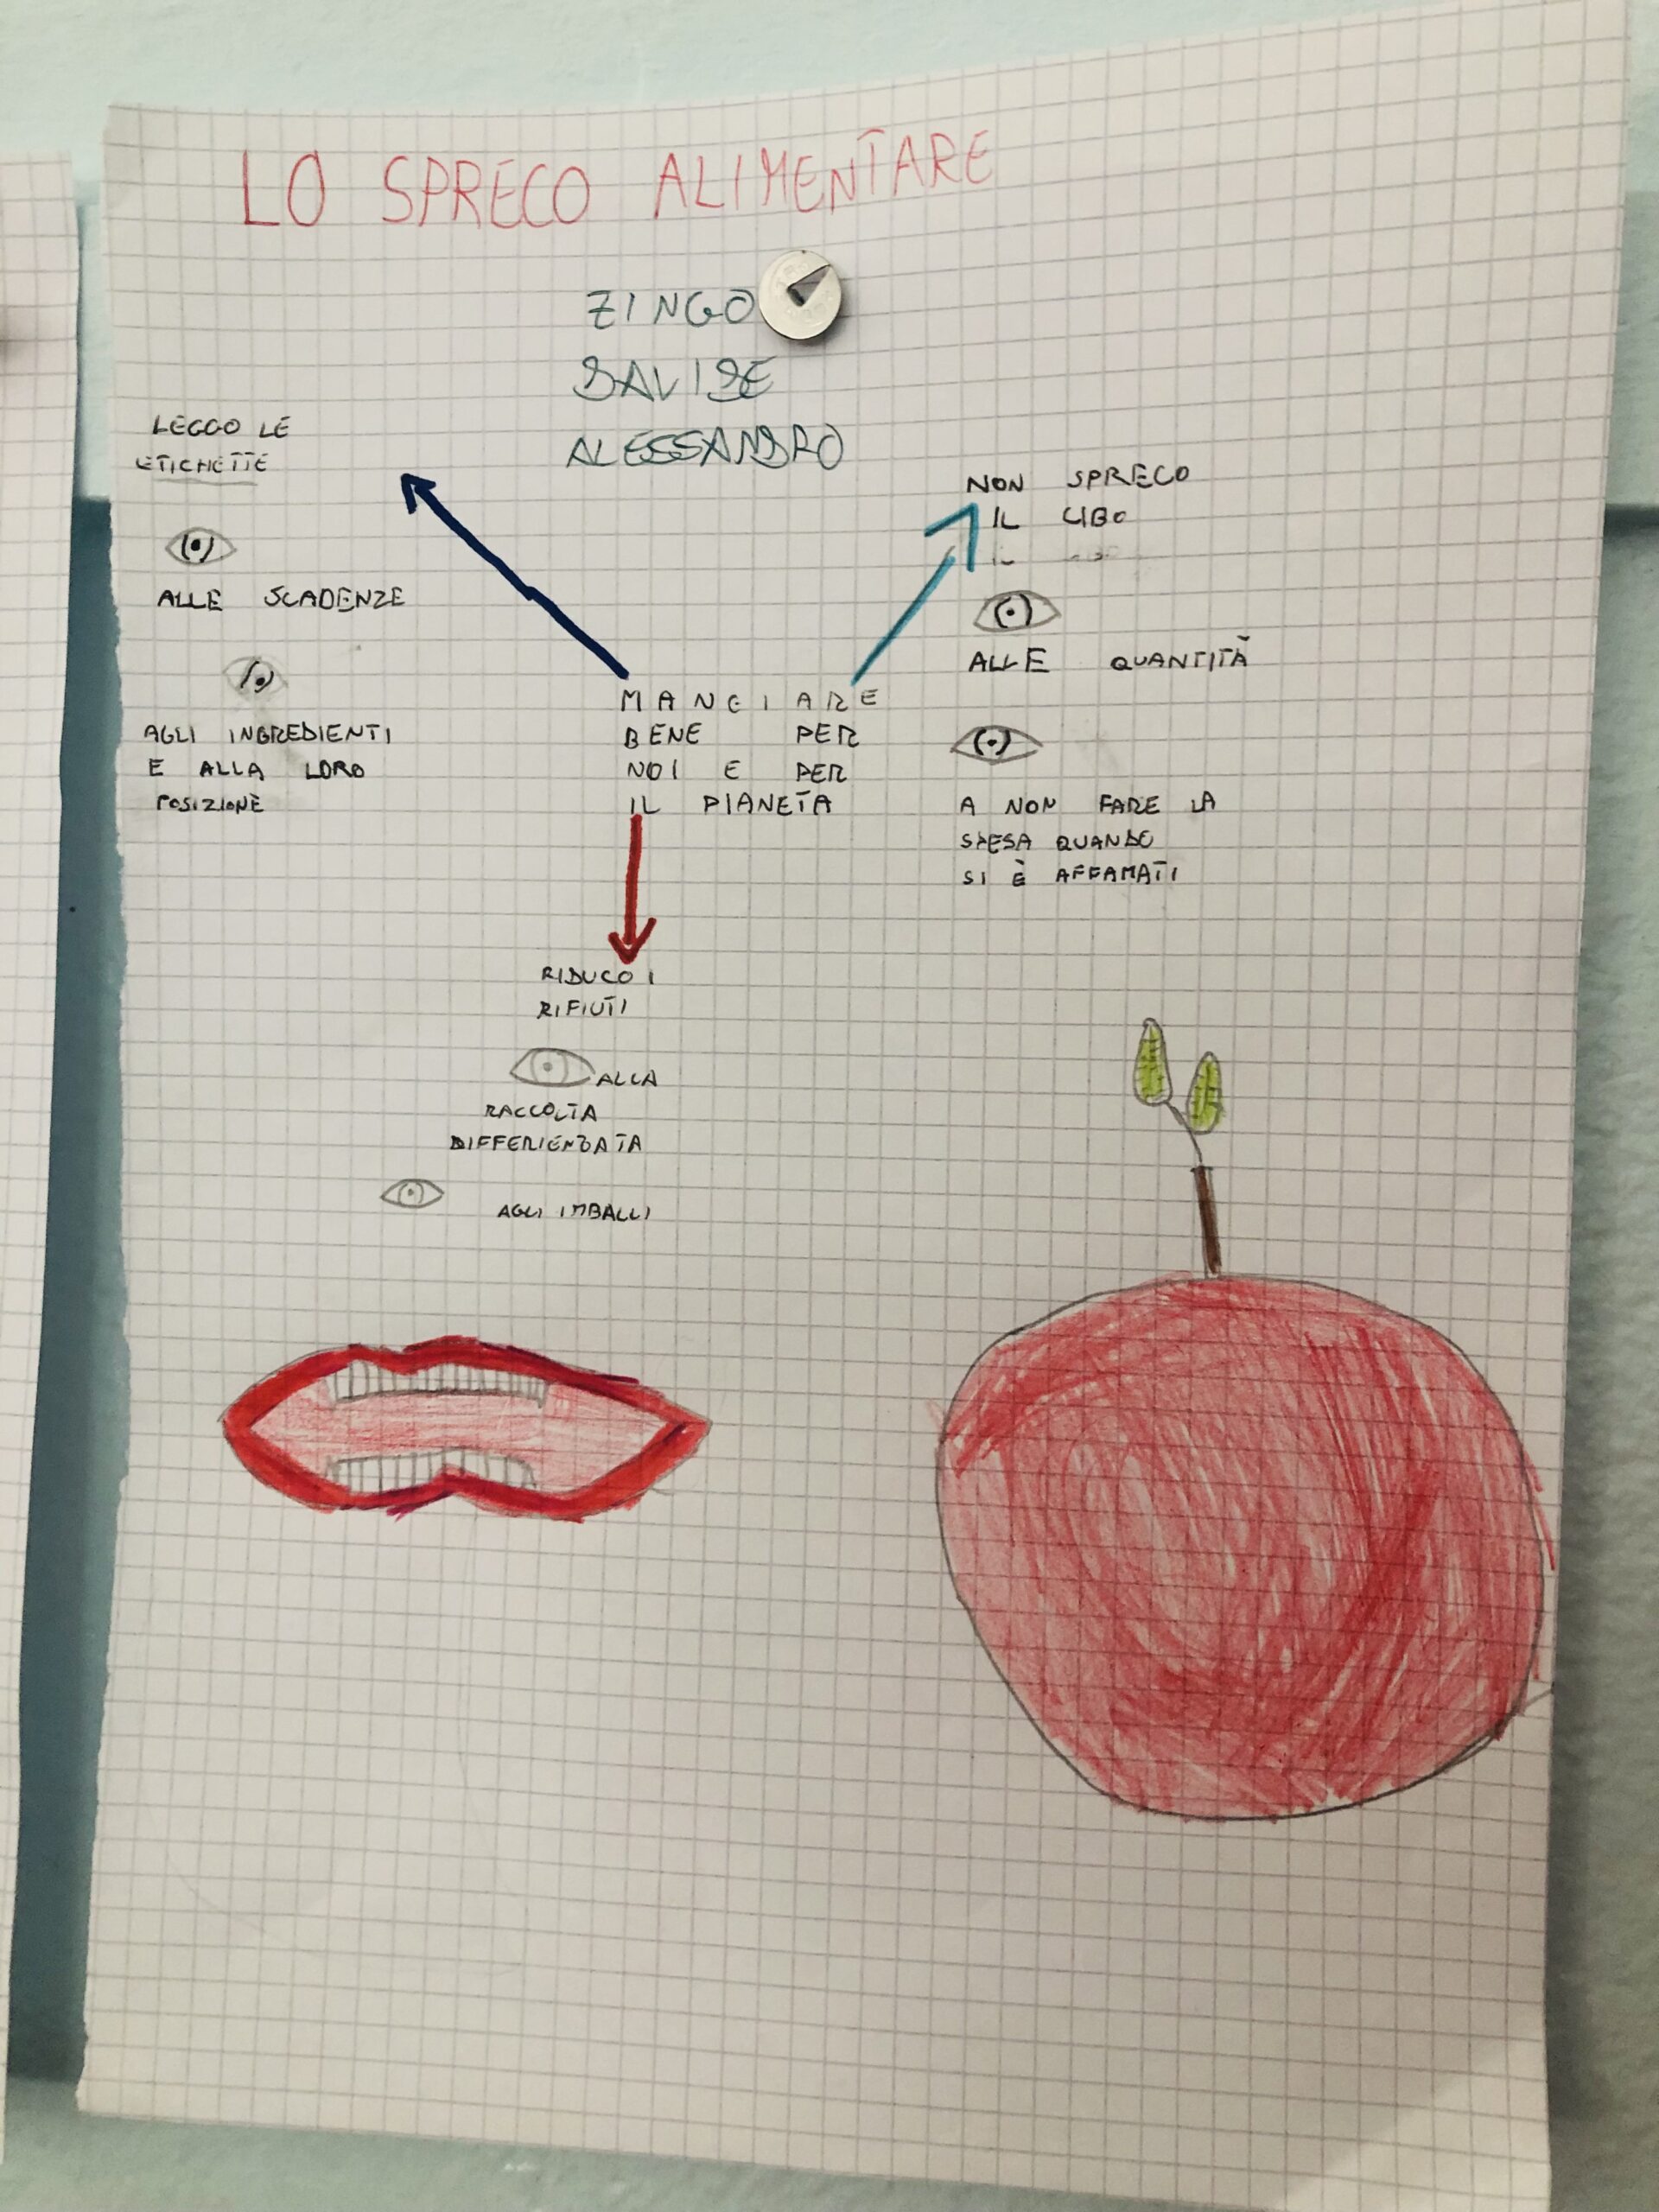 LO SPRECO ALIMENTARE
ZINGO
ALESSANDRO
LEGGO LE
ETICHETTE
ALLE SCADENZE
AGLI INGREDIENTI
E ALLA LORO
POSIZIONE
MANGIARE
BENE PER
NOI E PER
IL PIANETA
NON SPRECO
IL CIBO
ALLE QUANTITÀ
A NON FARE LA
SPESA QUANDO
SI È AFFAMATI
RIDUCO I
RIFIUTI
ALLA
RACCOLTA
DIFFERIENZATA
AGLI IMBALLI